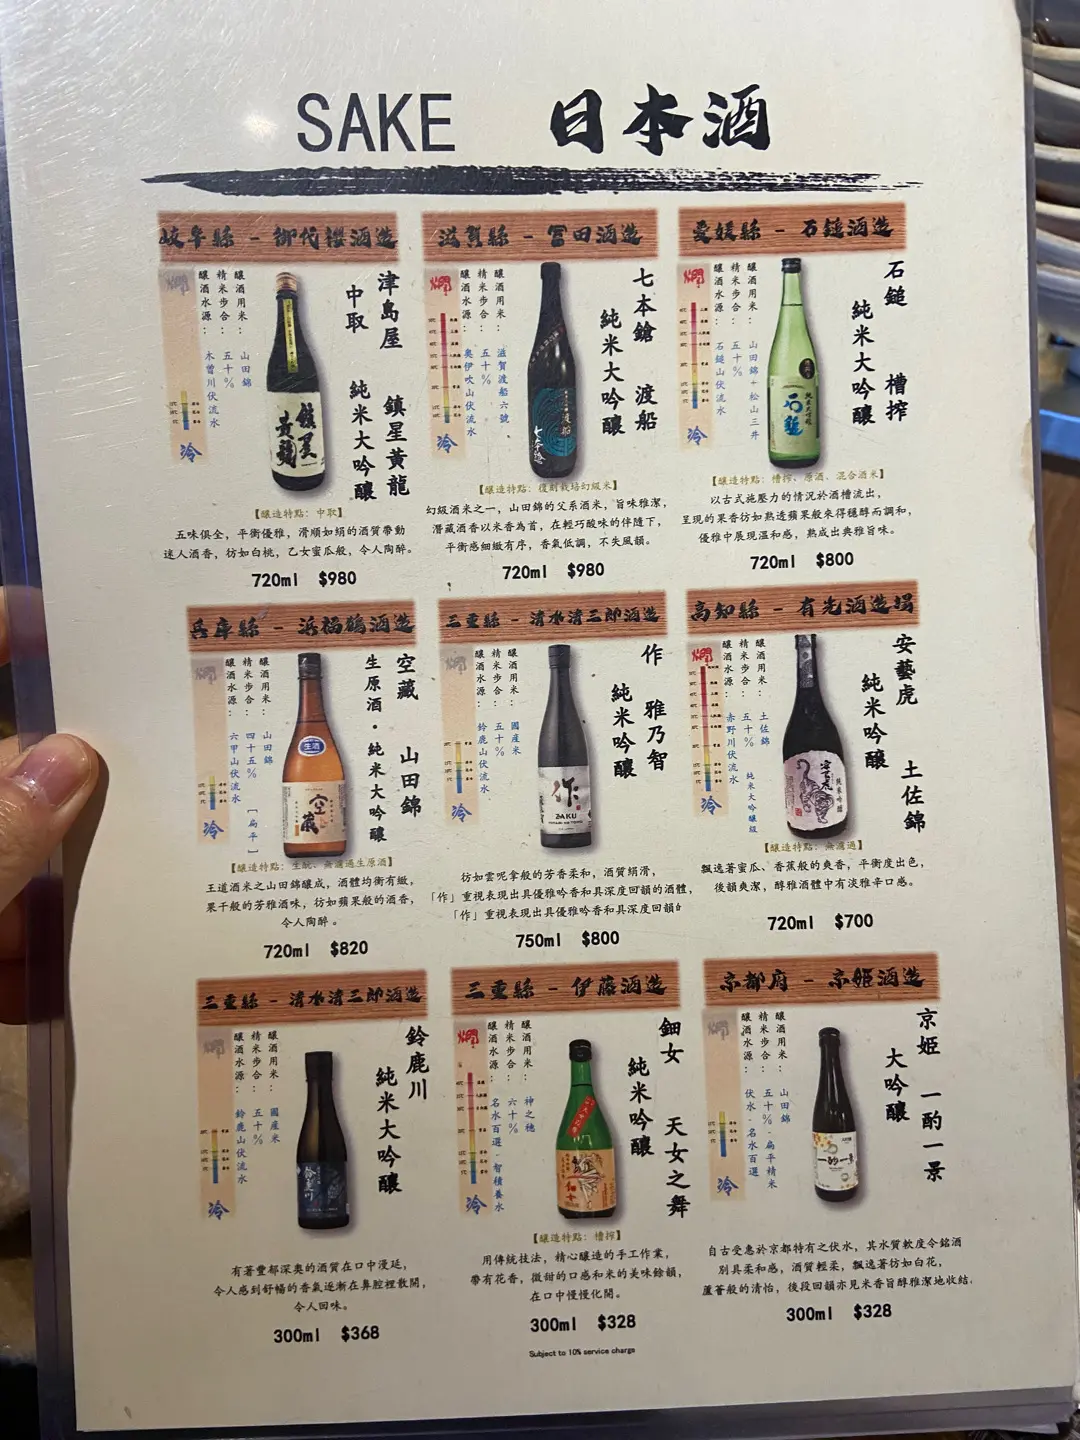 SAKE 日本酒
岐阜縣 - 御代櫻酒造
津島屋 鎮星黃龍
中取 純米大吟釀
釀酒用米: 山田錦
精米步合: 五十%
釀酒水源: 木曽川伏流水
燗
冷
【釀造特點: 中取】
五味俱全，平衡優雅，滑順如絹的酒質帶動
迷人酒香，彷如白桃，乙女蜜瓜般，令人陶醉。
720ml $980
滋賀縣 - 冨田酒造
七本鎗 渡船
純米大吟釀
釀酒用米: 滋賀渡船六號
精米步合: 五十%
釀酒水源: 奧伊吹山伏流水
燗
冷
【釀造特點: 復刻栽培幻級米】
幻級酒米之一，山田錦的父系酒米，旨味雅潔，
潛藏酒香以米香為首，在輕巧酸味的伴隨下，
平衡感細緻有序，香氣低調，不失風韻。
720ml $980
愛媛縣 - 石鎚酒造
石鎚 槽搾
純米大吟釀
釀酒用米: 山田錦+松山三井
精米步合: 五十%
釀酒水源: 石鎚山伏流水
燗
冷
【釀造特點: 槽搾、原酒、混合酒米】
以古式施壓力的情況於酒槽流出，
呈現的果香彷如熟透蘋果般來得穩醇而調和，
優雅中展現溫和感，熟成出典雅旨味。
720ml $800
兵庫縣 - 浜福鶴酒造
空藏 山田錦
生原酒・純米大吟釀
釀酒用米: 山田錦
精米步合: 四十五% [扁平]
釀酒水源: 六甲山伏流水
燗
冷
生酒
空藏
【釀造特點: 生酛、無濾過生原酒】
王道酒米之山田錦釀成，酒體均衡有緻，
果干般的芳雅酒味，彷如蘋果般的酒香，
令人陶醉。
720ml $820
三重縣 - 清水清三郎酒造
作 雅乃智
純米吟釀
釀酒用米: 國產米
精米步合: 五十%
釀酒水源: 鈴鹿山伏流水
燗
冷
作
ZAKU
彷如雲呢拿般的芳香柔和，酒質絹滑，
「作」重視表現出具優雅吟香和具深度回韻的酒體，
「作」重視表現出具優雅吟香和具深度回韻
750ml $800
高知縣 - 有光酒造場
安藝虎 土佐錦
純米吟釀
釀酒用米: 土佐錦
精米步合: 五十% 純米大吟釀級
釀酒水源: 赤野川伏流水
燗
冷
【釀造特點: 無濾過】
飄逸著蜜瓜、香蕉般的爽香，平衡度出色，
後韻爽潔，醇雅酒體中有淡雅辛口感。
720ml $700
三重縣 - 清水清三郎酒造
鈴鹿川
純米大吟釀
釀酒用米: 國產米
精米步合: 五十%
釀酒水源: 鈴鹿山伏流水
燗
冷
鈴鹿川
有著豐郁深奧的酒質在口中漫延，
令人感到舒暢的香氣逐漸在鼻腔裡散開，
令人回味。
300ml $368
三重縣 - 伊藤酒造
鈿女 天女之舞
純米吟釀
釀酒用米: 神之穗
精米步合: 六十%
釀酒水源: 名水百選・智積養水
燗
冷
【釀造特點: 槽搾】
用傳統技法，精心釀造的手工作業，
帶有花香，微甜的口感和米的美味餘韻，
在口中慢慢化開。
300ml $328
京都府 - 京姬酒造
京姬 一酌一景
大吟釀
釀酒用米: 山田錦
精米步合: 五十%・扁平精米
釀酒水源: 伏水・名水百選
燗
冷
一酌一景
自古受惠於京都特有之伏水，其水質軟度令銘酒
別具柔和感，酒質輕柔，飄逸著彷如白花，
蘆薈般的清怡，後段回韻亦見米香旨醇雅潔地收結.
300ml $328
Subject to 10% service charge